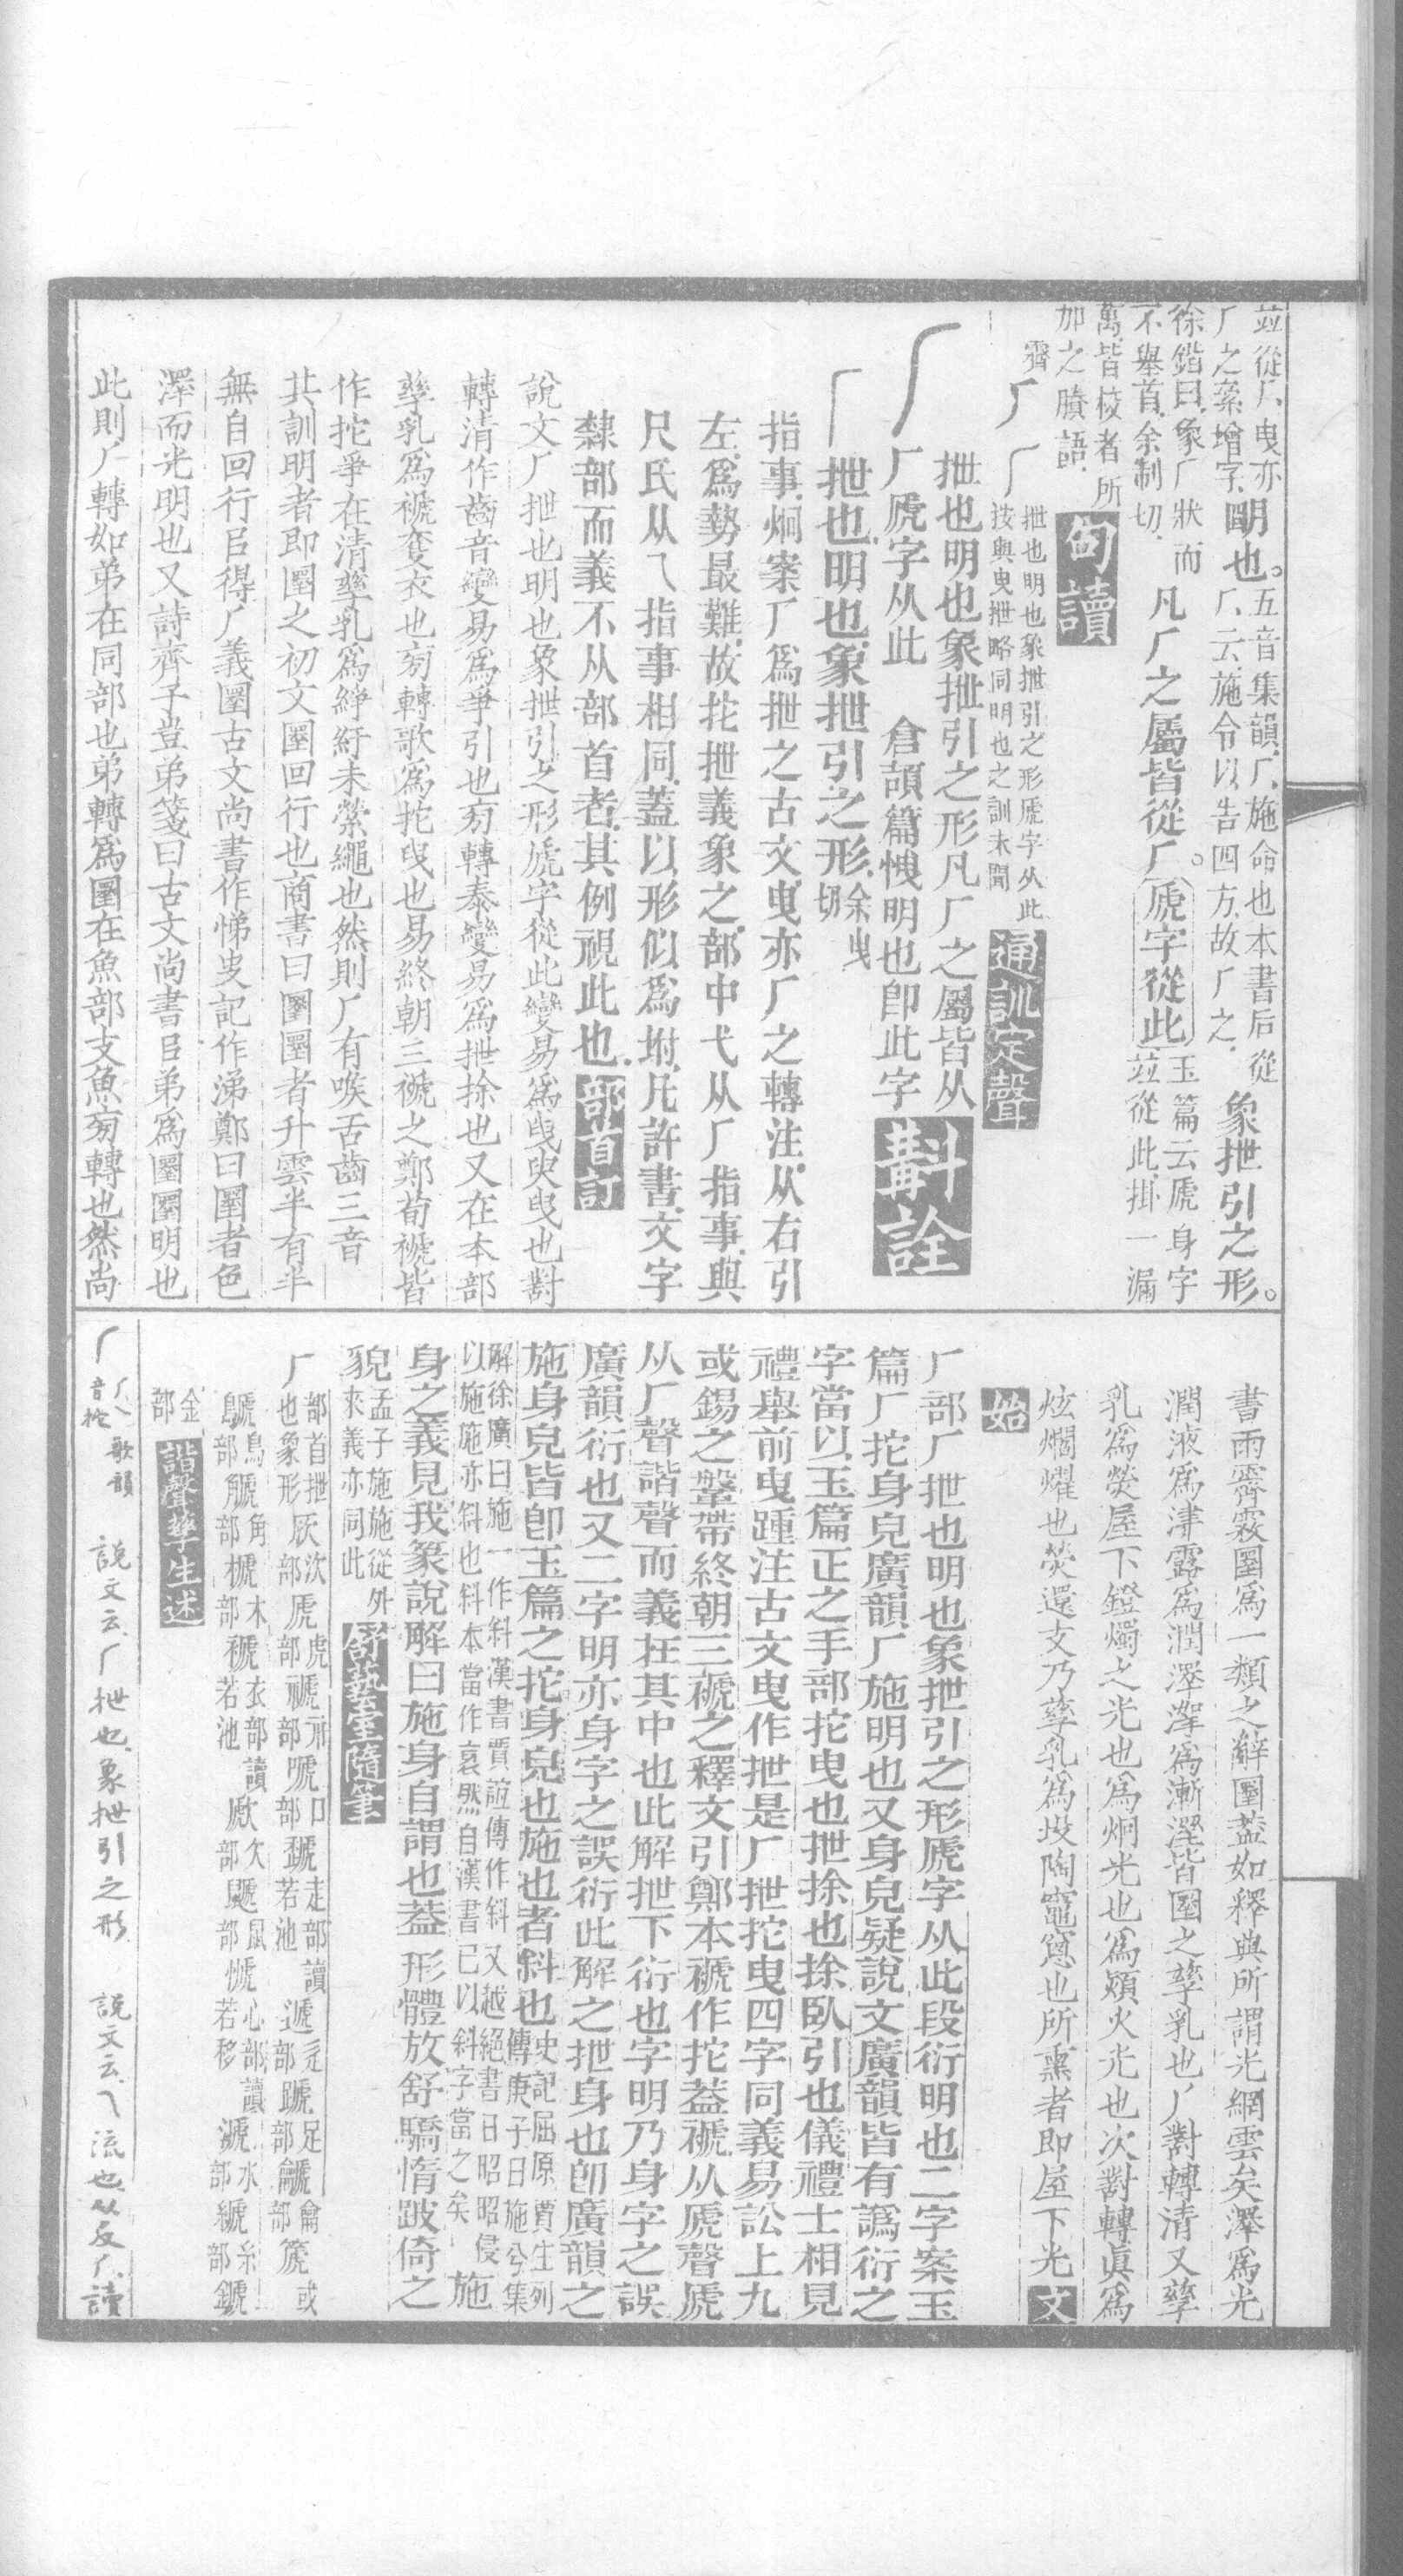 竝從厂曳亦明也。五音集韻厂施命也本書后從
厂之案增字厂云施令以告四方故厂之象抴引之形。
徐鍇曰象厂狀而凡厂之屬皆從厂。虒字從此玉篇云虒身字
不舉首余制切竝從此掛一漏
萬皆校者所
加之賸語句讀
厂抴也明也象抴引之形虒字从此
按與曳抴略同明也之訓未聞通訓定聲
抴也明也象抴引之形凡厂之屬皆从
厂虒字从此 倉頡篇愧明也卽此字斠詮
抴也明也象抴引之形余曳切
指事炯案厂爲抴之古文曳亦厂之轉注从右引
左爲勢最難故拕抴義象之部中弋从厂指事與
尺氏从乁指事相同蓋以形似爲坿凡許書文字
隸部而義不从部首者其例視此也部首訂
說文厂抴也明也象抴引之形虒字從此變易爲曳臾曳也對
轉清作齒音變易爲爭引也旁轉泰變易爲抴捈也又在本部
孳乳爲褫奪衣也旁轉歌爲拕曳也易終朝三褫之鄭荀褫皆
作拕爭在清孳乳爲綪紆未縈繩也然則厂有喉舌齒三音
其訓明者即圛之初文圛回行也商書曰圛圛者升雲半有半
無自回行㠯得厂義圛古文尚書作悌史記作涕鄭曰圛者色
澤而光明也又詩齊子豈弟箋曰古文尚書㠯弟爲圛圛明也
此則厂轉如弟在同部也弟轉爲圛在魚部支魚旁轉也然尚
書雨霽霧圛爲一類之辭圛蓋如釋典所謂光網雲矣澤爲光
潤液爲津露爲潤澤爲漸溼皆圛之孳乳也厂對轉清又孳
乳爲熒屋下鐙燭之光也爲炯光也爲熲火光也次對轉眞爲
炫爓燿也熒還支乃孳乳爲垼陶竈窻也所熏者即屋下光文
始
厂部厂抴也明也象抴引之形虒字从此段衍明也二字案玉
篇厂拕身皃廣韻厂施明也又身皃疑說文廣韻皆有譌衍之
字當以玉篇正之手部拕曳也抴捈也捈臥引也儀禮士相見
禮舉前曳踵注古文曳作抴是厂抴拕曳四字同義易訟上九
或錫之鞶帶終朝三褫之釋文引鄭本褫作拕蓋褫从虒聲虒
从厂聲諧聲而義在其中也此解抴下衍也字明乃身字之誤
廣韻衍也又二字明亦身字之誤衍此解之抴身也卽廣韻之
施身皃皆卽玉篇之拕身皃也施也者斜也史記屈原賈生列
傳庚子日施兮集
解徐廣曰施一作斜漢書賈誼傳作斜又越絕書曰昭昭侵施
以施施亦斜也斜本當作衺然自漢書已以斜字當之矣
身之義見我篆說解曰施身自謂也蓋形體放舒驕惰跛倚之
貌孟子施施從外
來義亦同此舒藝室隨筆
厂部首抴
也象形
金
部諧聲孳生述
厂歌韻 說文云厂抴也象抴引之形 說文云乁流也从反厂讀